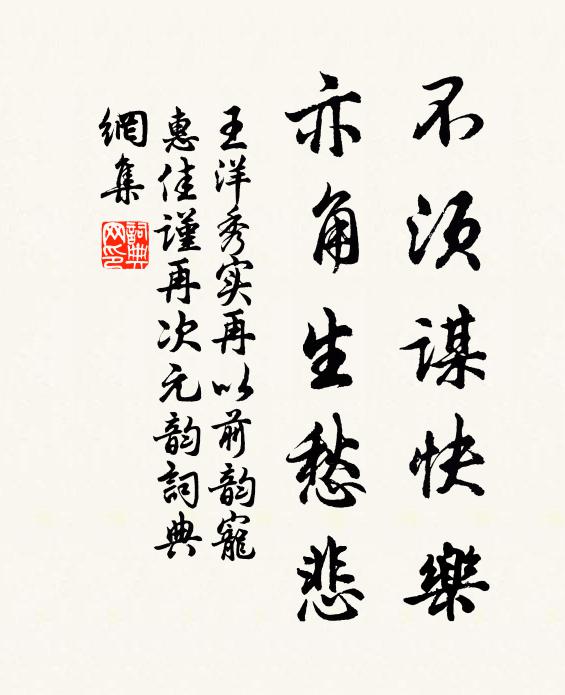 不須謀快樂
亦角生愁悲
王洋秀实再以前韵寵
惠佳谨再次元韵詞典
網集
詞典
网印